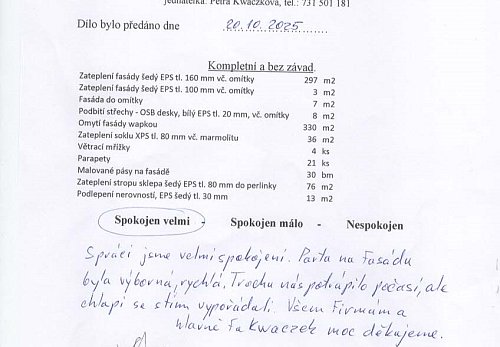 jednatelka: Petra Kwaczková, tel.: 731 501 181
Dílo bylo předáno dne 20.10.2025
Kompletní a bez závad.
Zateplení fasády šedý EPS tl. 160 mm vč. omítky 297 m2
Zateplení fasády šedý EPS tl. 100 mm vč. omítky 3 m2
Fasáda do omítky 7 m2
Podbití střechy - OSB desky, bílý EPS tl. 20 mm, vč. omítky 8 m2
Omytí fasády wapkou 330 m2
Zateplení soklu XPS tl. 80 mm vč. marmolitu 36 m2
Větrací mřížky 4 ks
Parapety 21 ks
Malované pásy na fasádě 30 bm
Zateplení stropu sklepa šedý EPS tl. 80 mm do perlinky 76 m2
Podlepení nerovností, EPS šedý tl. 30 mm 13 m2
Spokojen velmi - Spokojen málo - Nespokojen
S prácí jsme velmi spokojení. Parta na fasádu
byla výborná, rychlá, Trochu nás potrápilo počasí, ale
chlapi se s tím vypořádali. Všem Firmám a
hlavně Fa Kwaczek moc děkujeme.